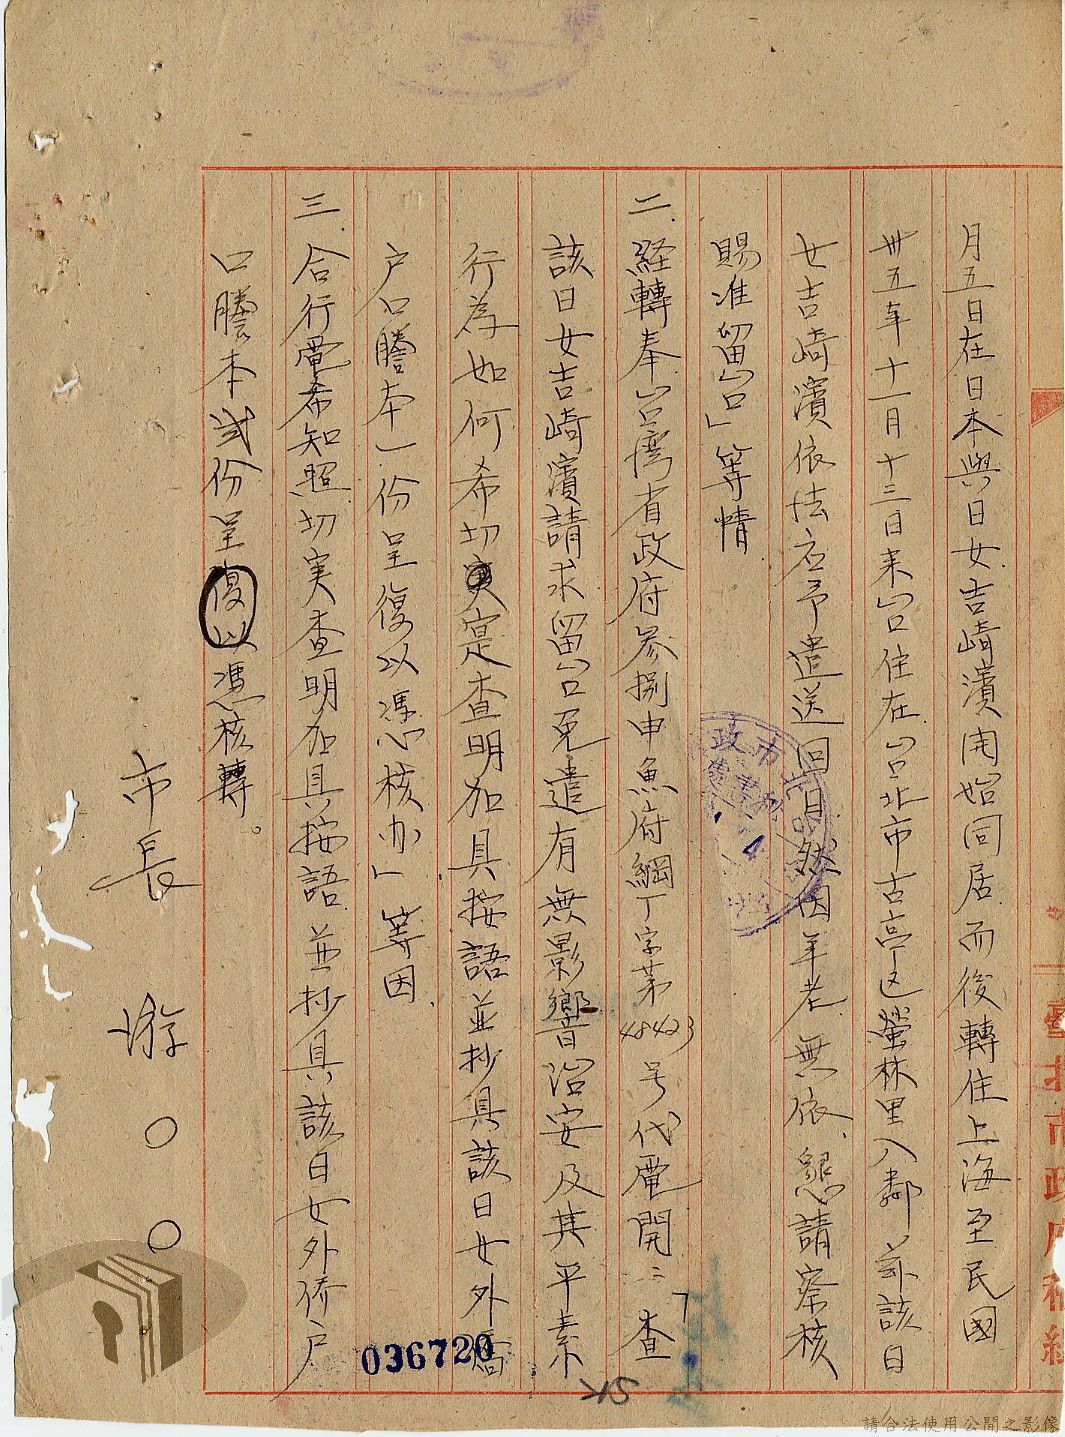 月五日在日本與日女吉崎濱開始同居而後轉住上海至民國
卅五年十一月十三日来台住在台北市古亭区螢林里八鄰茲該日
女吉崎濱依法应予遣送回日然因年老無依懇請察核
賜准留台」等情
二、経轉奉台湾省政府参捌申魚府綱丁字第48423号代電開:「查
該日女吉崎濱請求留台免遣有無影響治安及其平素
行為如何希切寔查明加具按語並抄具該日女外僑
户口謄本一份呈復以憑核办」等因
三、合行電希知照切实查明加具按語並抄具該日女外侨户
口謄本弍份呈復以憑核轉。
市長 游○○
036720
SK
臺北市政府稿紙
請合法使用公開之影像